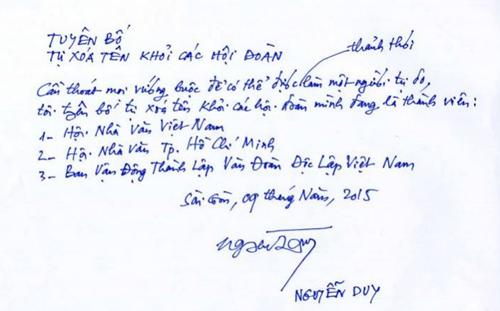 TUYÊN BỐ
TỰ XÓA TÊN KHỎI CÁC HỘI ĐOÀN
thảnh thơi
Cần thoát mọi vướng buộc để có thể được làm một người tự do,
tôi tuyên bố tự xoá tên khỏi các hội đoàn mình đang là thành viên:
1- Hội Nhà văn Việt Nam
2- Hội Nhà văn Tp. Hồ Chí Minh
3- Ban Vận Động Thành Lập Văn Đoàn Độc Lập Việt Nam
Sài Gòn, 09 tháng Năm, 2015
NGUYỄN DUY